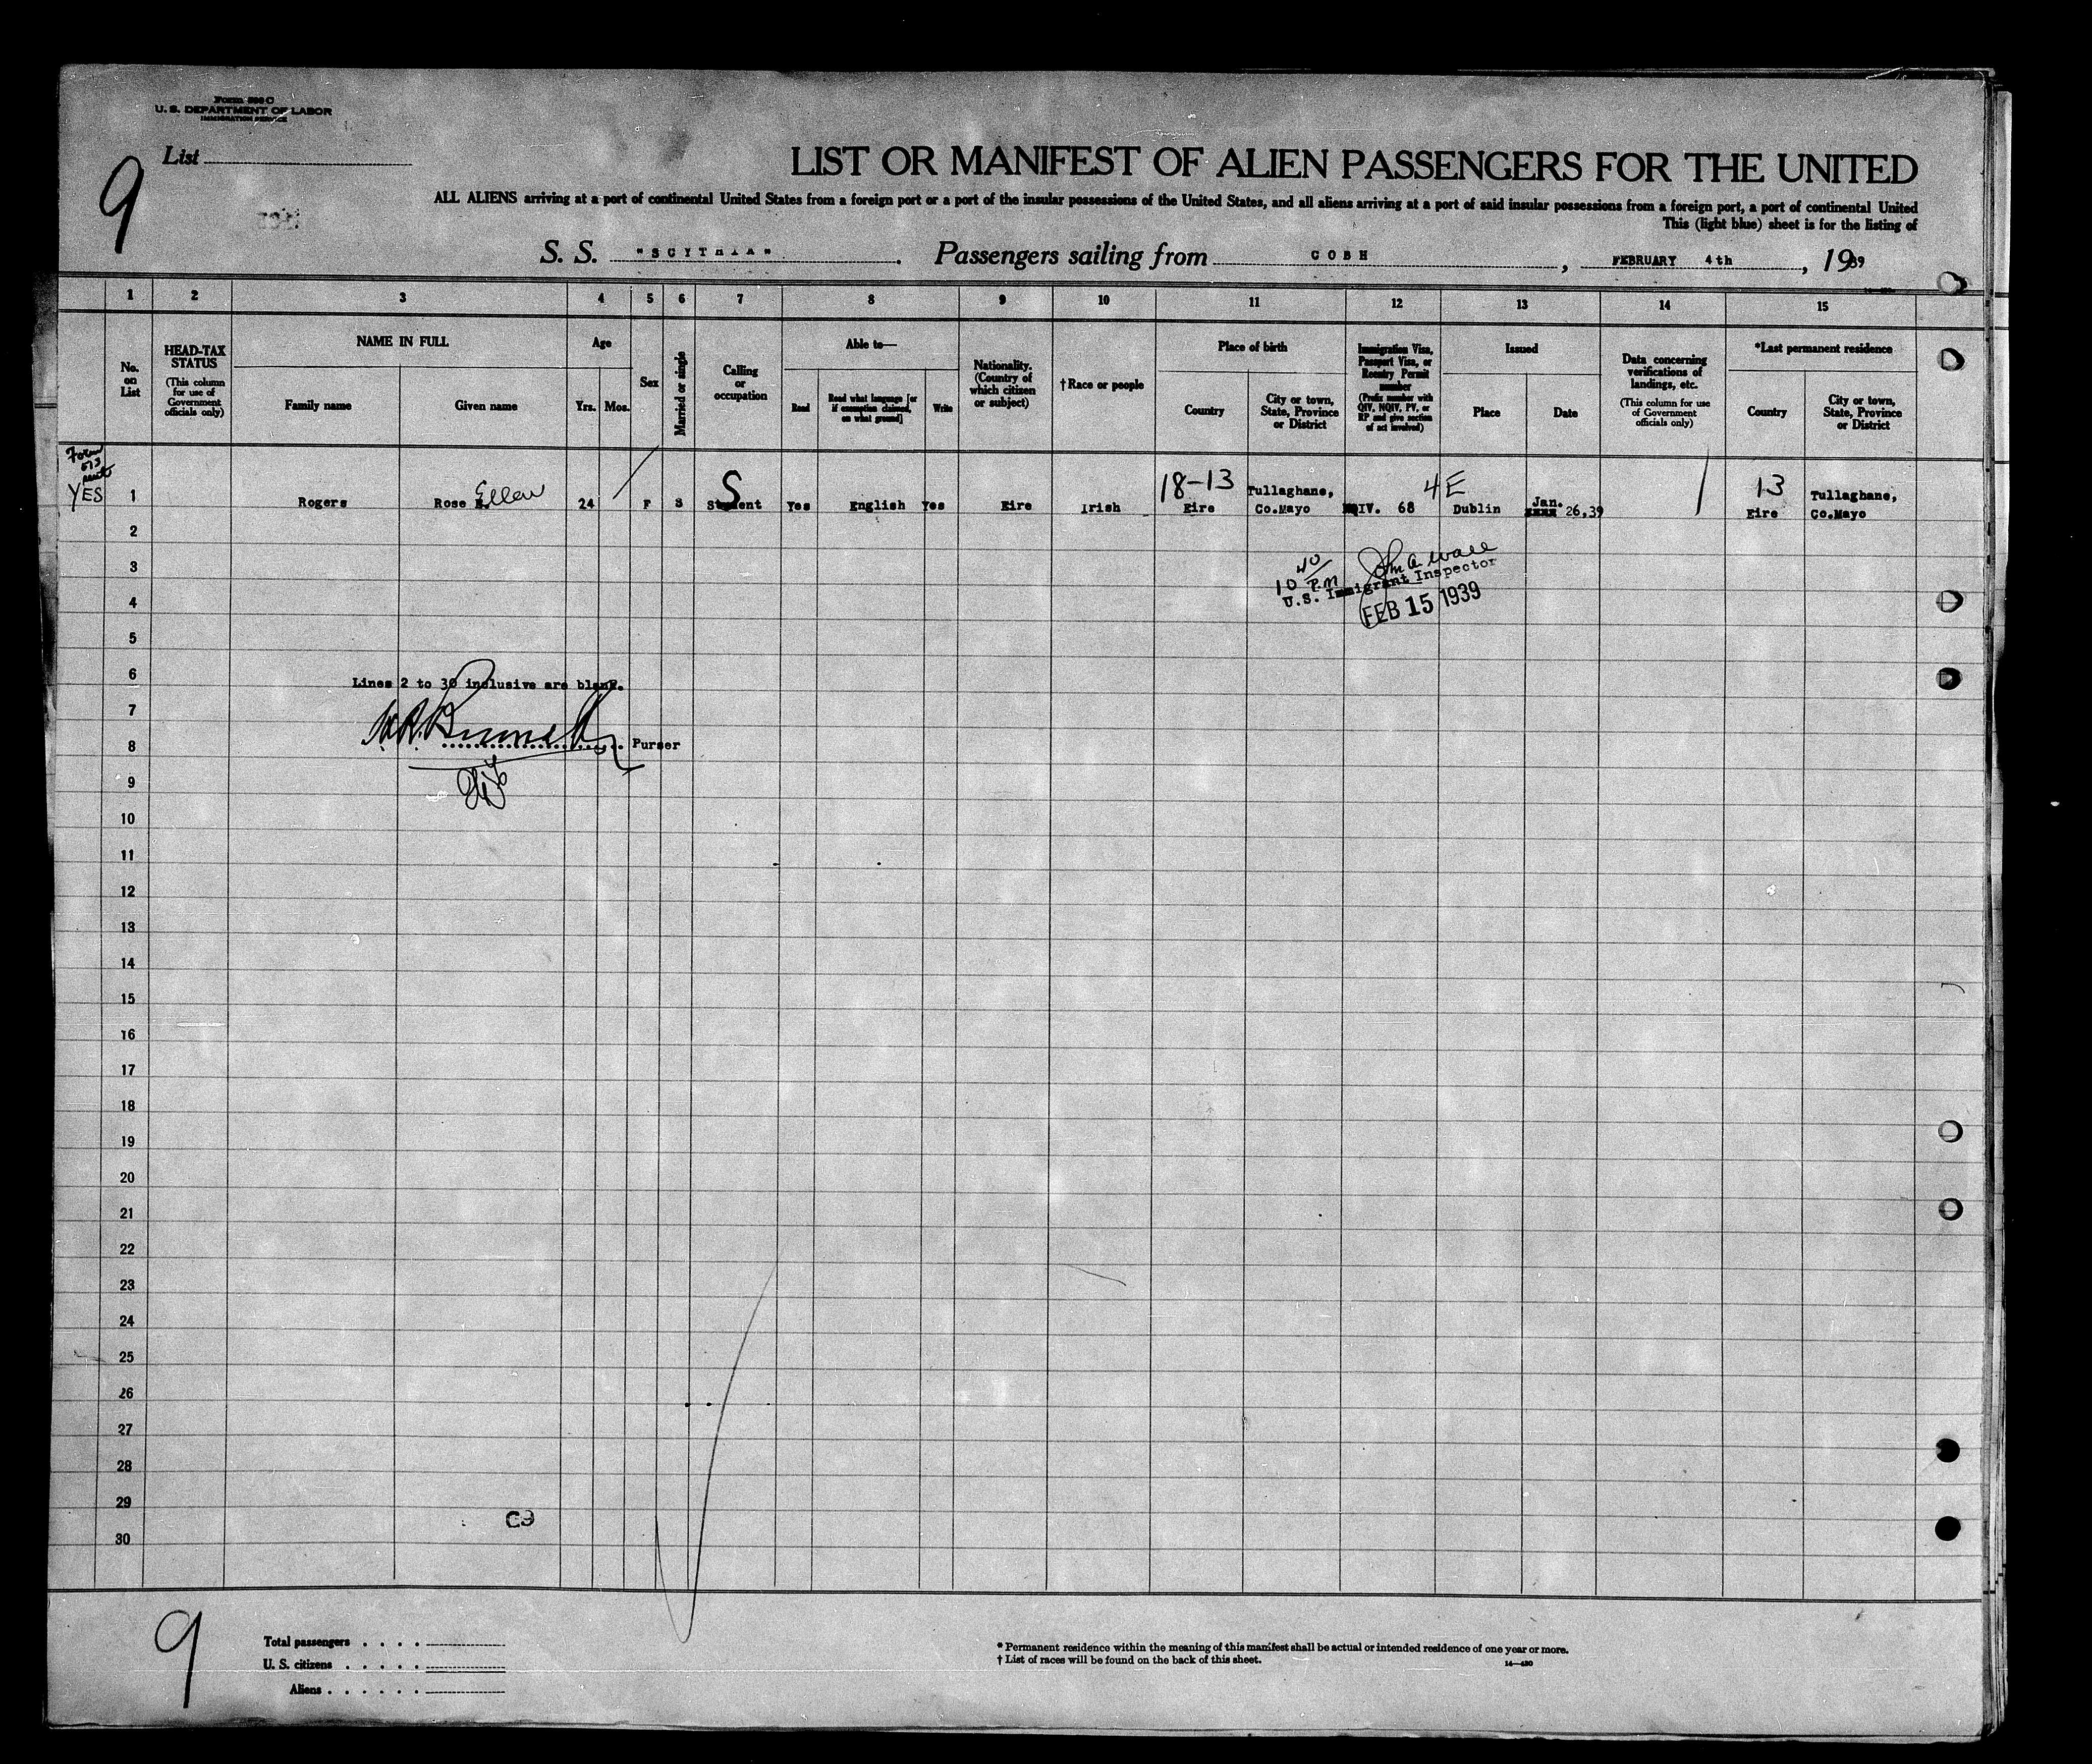 Form 500 C
U. S. DEPARTMENT OF LABOR
IMMIGRATION SERVICE
List
9
LIST OR MANIFEST OF ALIEN PASSENGERS FOR THE UNITED
ALL ALIENS arriving at a port of continental United States from a foreign port or a port of the insular possessions of the United States, and all aliens arriving at a port of said insular possessions from a foreign port, a port of continental United
This (light blue) sheet is for the listing of
S. S. "SCYTHIA". Passengers sailing from COBH, FEBRUARY 4th, 1939
1 2 3 4 5 6 7 8 9 10 11 12 13 14 15
No. on List
HEAD-TAX STATUS (This column for use of Government officials only)
NAME IN FULL Family name Given name
Age Yrs. Mos.
Sex
Married or single
Calling or occupation
Able to— Read Read what language [or if exemption claimed, on what ground] Write
Nationality. (Country of which citizen or subject)
†Race or people
Place of birth Country City or town, State, Province or District
Immigration Visa, Passport Visa, or Reentry Permit number (Prefix number with QIV, NQIV, PV, or RP and give section of act involved)
Issued Place Date
Data concerning verifications of landings, etc. (This column for use of Government officials only)
*Last permanent residence Country City or town, State, Province or District
Form
YES 1 Rogers Rose Ellen 24 F S Student S Yes English Yes Eire Irish 18-13 Eire Tullaghane, Co.Mayo IV. 68 4E Dublin Jan. 26,39 13 Eire Tullaghane, Co.Mayo
2
3
10 40 P.M
U.S. Immigrant Inspector
4
FEB 15 1939
5
6
Lines 2 to 30 inclusive are blank.
7
8
Purser
9
10
11
12
13
14
15
16
17
18
19
20
21
22
23
24
25
26
27
28
29
C9
30
9
Total passengers
U. S. citizens
Aliens
* Permanent residence within the meaning of this manifest shall be actual or intended residence of one year or more.
† List of races will be found on the back of this sheet.
14—430